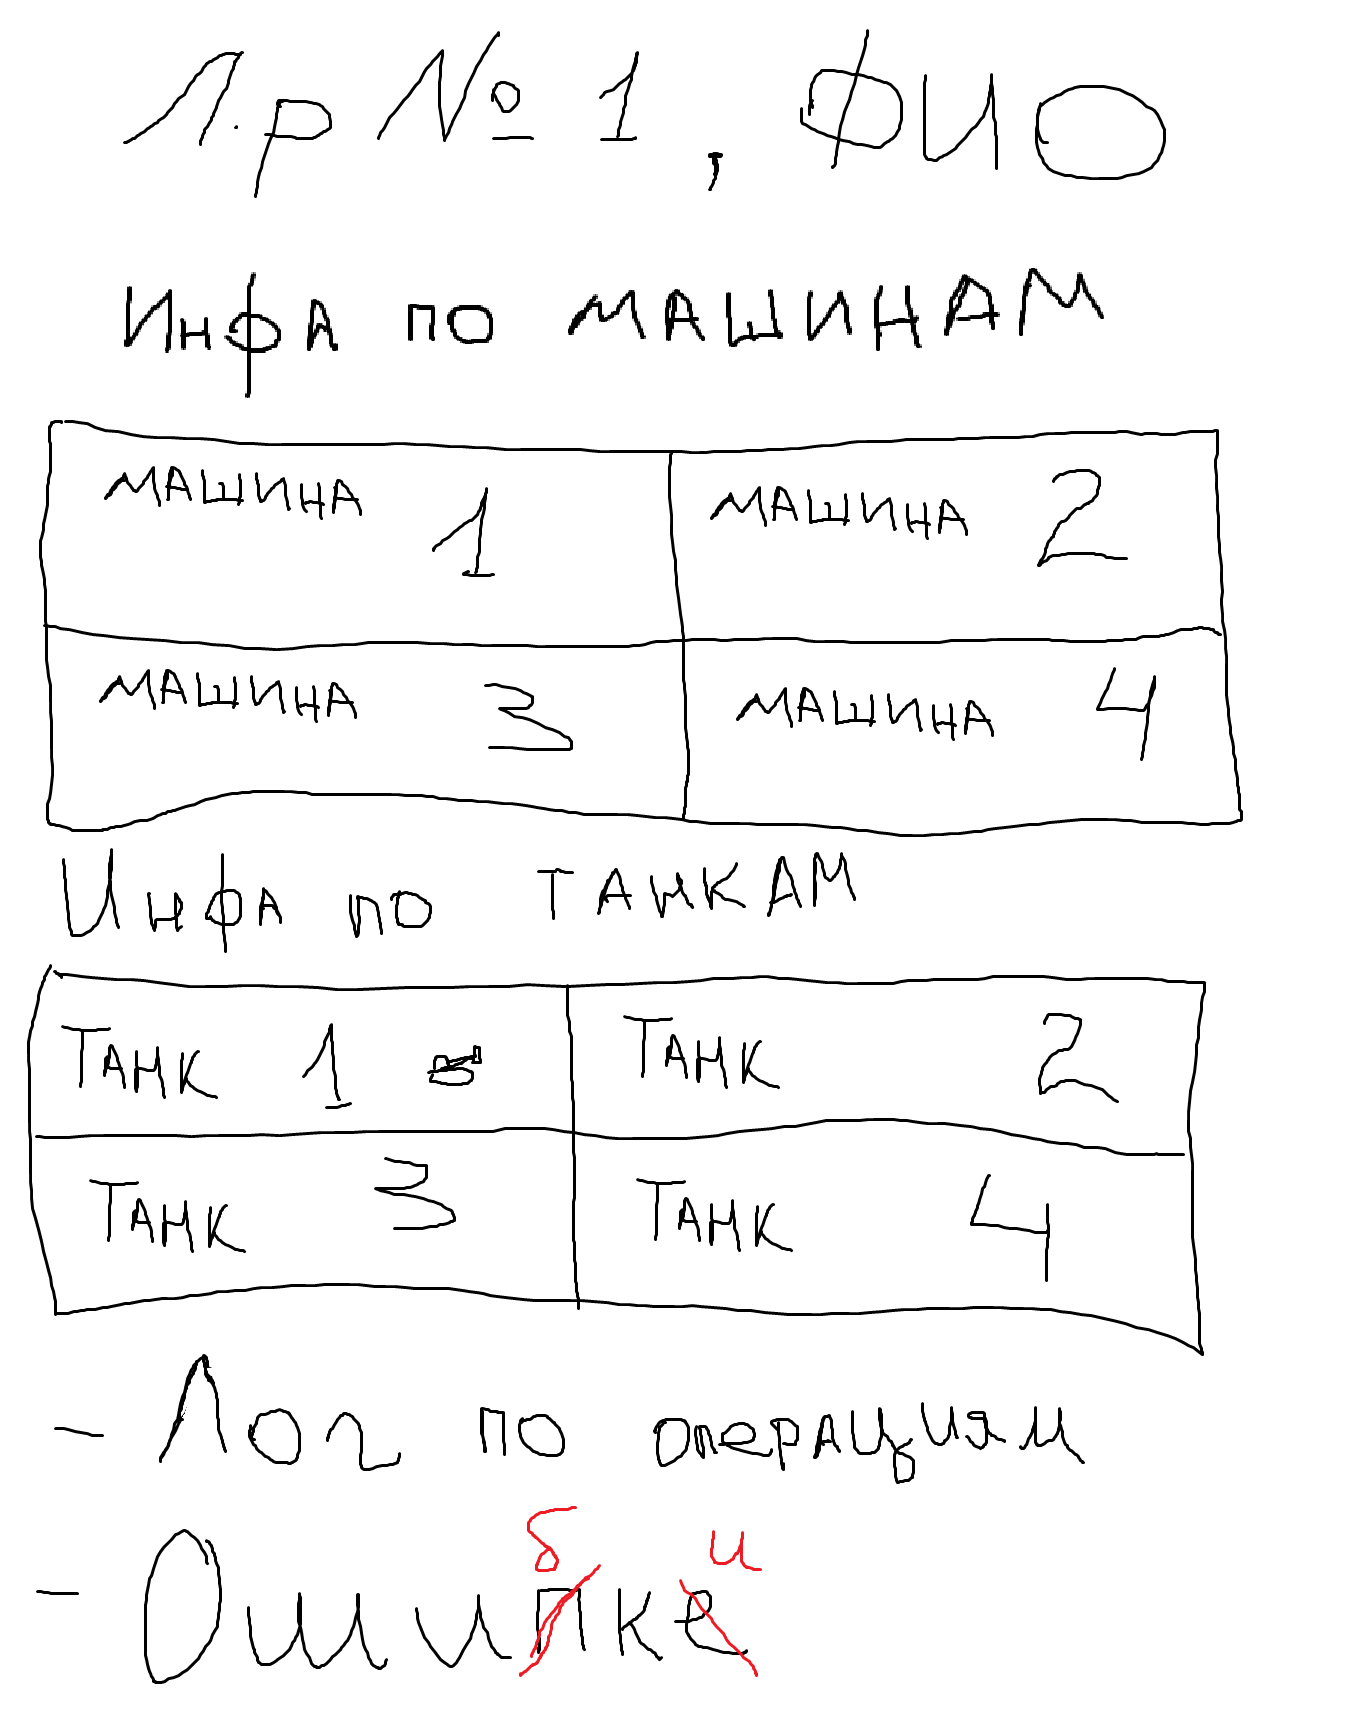 Л.р № 1, ФИО
Инфа по машинам
машина 1 машина 2
машина 3 машина 4
Инфа по танкам
Танк 1 Танк 2
Танк 3 Танк 4
- Лог по операциям
б и
- Ошипке